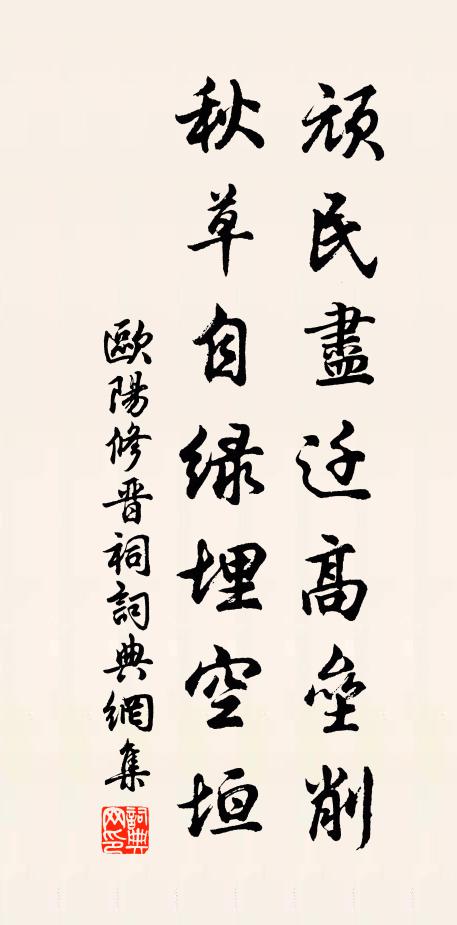 頑民盡迁高壘削
秋草自绿埋空垣
歐陽修晋祠詞典網集
詞典网印